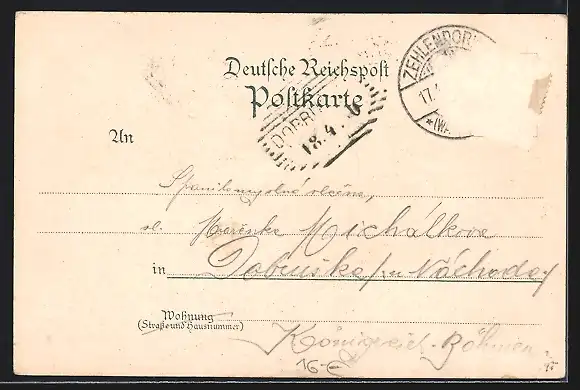 Deutsche Reichspost
Postkarte
ZEHLENDOR
17.
*(WA
DOBRU
18.4.
An
sl. Mařenka Michálkova
in Dobruška / u Náchoda /
Wohnung
(Straße und Hausnummer)
Königreich Böhmen
16-